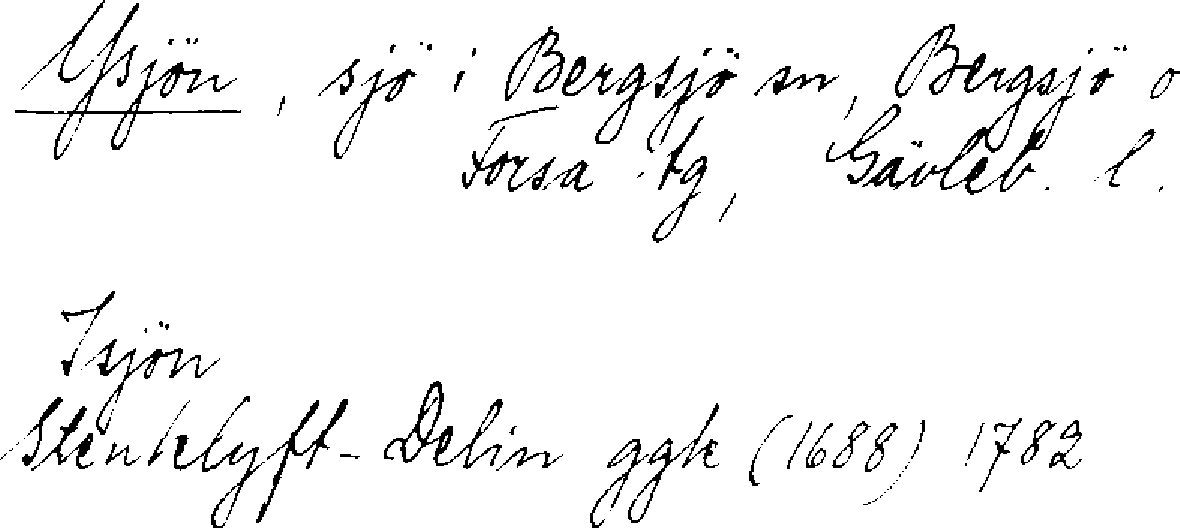 Ysjön, sjö i Bergsjö sn, Bergsjö o
Forsa tg, Gävleb. l.
Isjön
Stenklyft-Delin ggk (1688) 1782